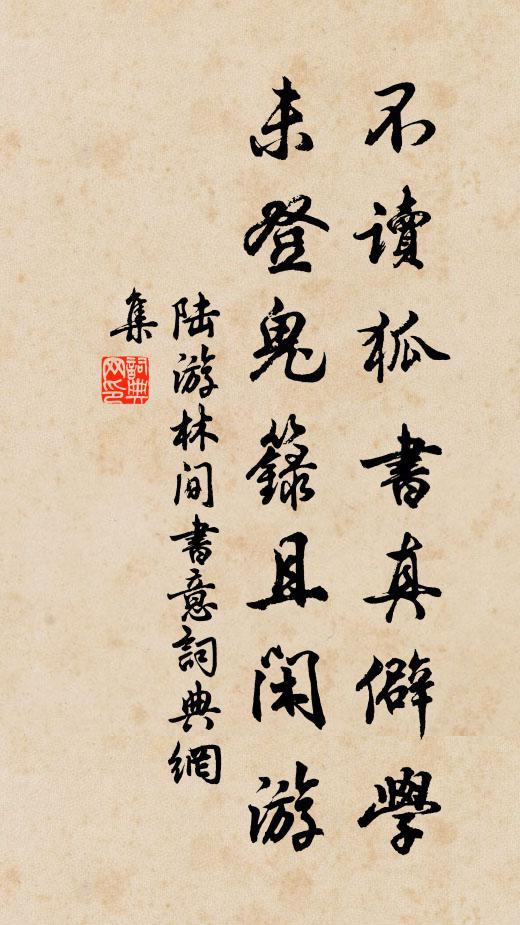 不讀狐書真僻學
未登鬼籙且閑游
陆游林间書意詞典網
集
詞典網印